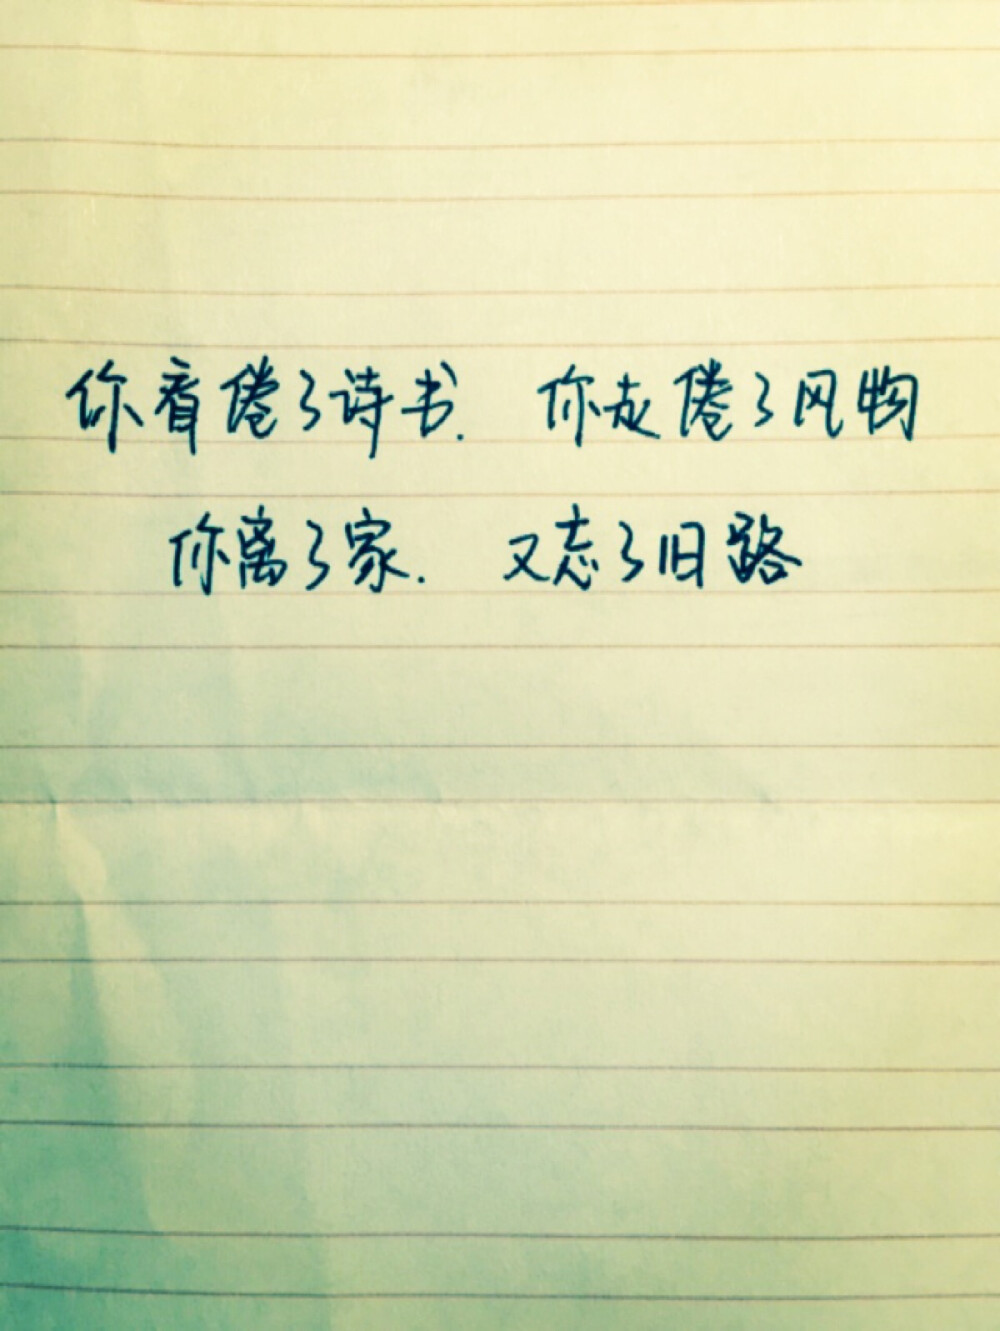 你看倦了诗书. 你走倦了风物
你离了家. 又忘了旧路